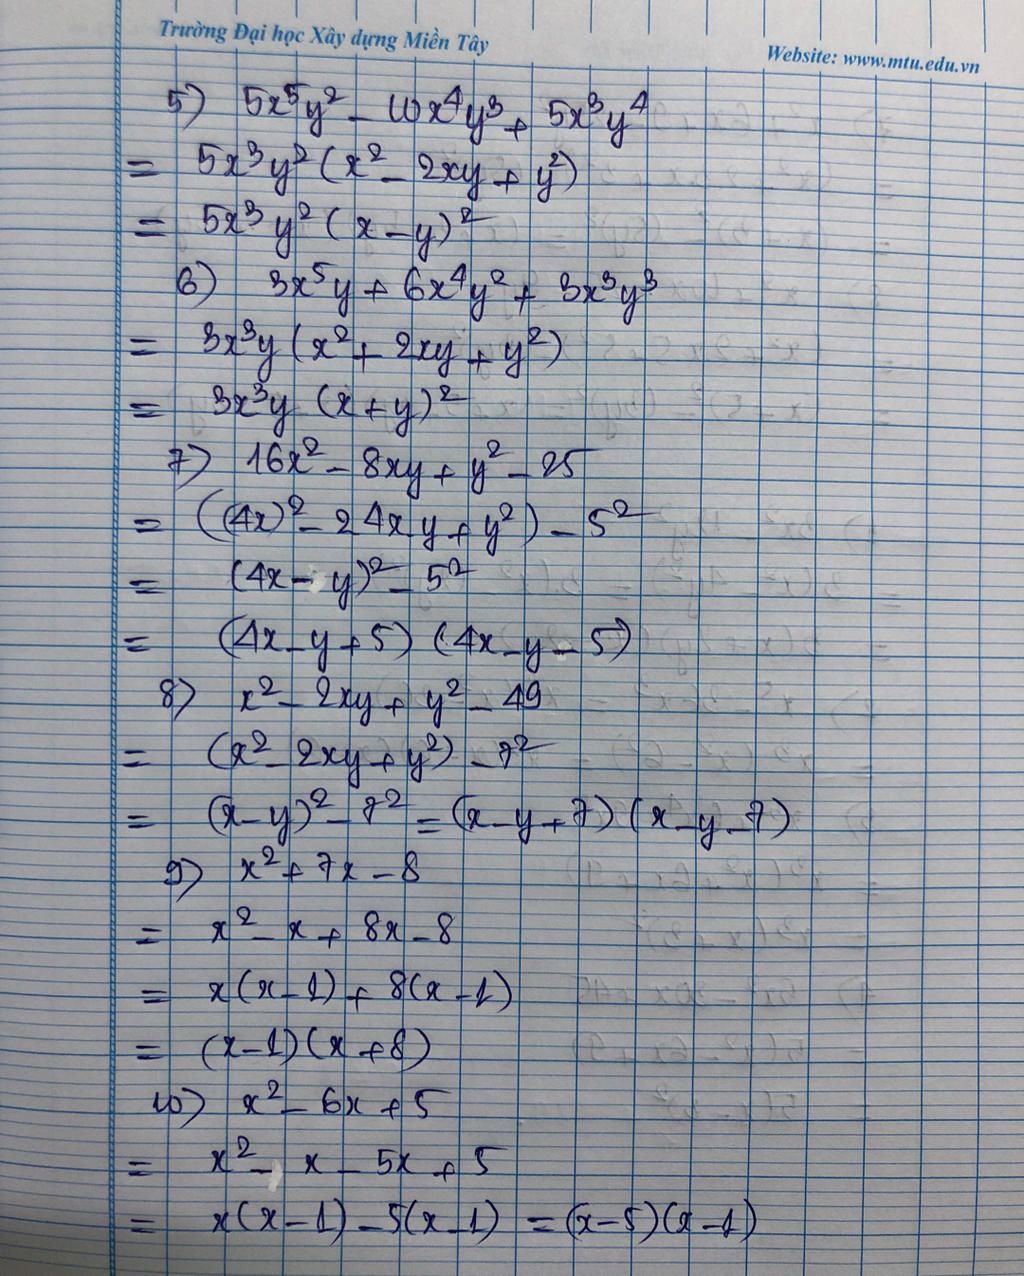 Trường Đại học Xây dựng Miền Tây
Website: www.mtu.edu.vn
5) 5x⁵y² - 10x⁴y³ + 5x³y⁴
= 5x³y² (x² - 2xy + y²)
= 5x³y² (x - y)²
6) 3x⁵y + 6x⁴y² + 3x³y³
= 3x³y (x² + 2xy + y²)
= 3x³y (x + y)²
7) 16x² - 8xy + y² - 25
= ((4x)² - 2 4x y + y²) - 5²
= (4x - y)² - 5²
= (4x - y + 5) (4x - y - 5)
8) x² - 2xy + y² - 49
= (x² - 2xy + y²) - 7²
= (x - y)² - 7² = (x - y + 7) (x - y - 7)
9) x² + 7x - 8
= x² - x + 8x - 8
= x(x - 1) + 8(x - 1)
= (x - 1)(x + 8)
10) x² - 6x + 5
= x² - x - 5x + 5
= x(x - 1) - 5(x - 1) = (x - 5)(x - 1)